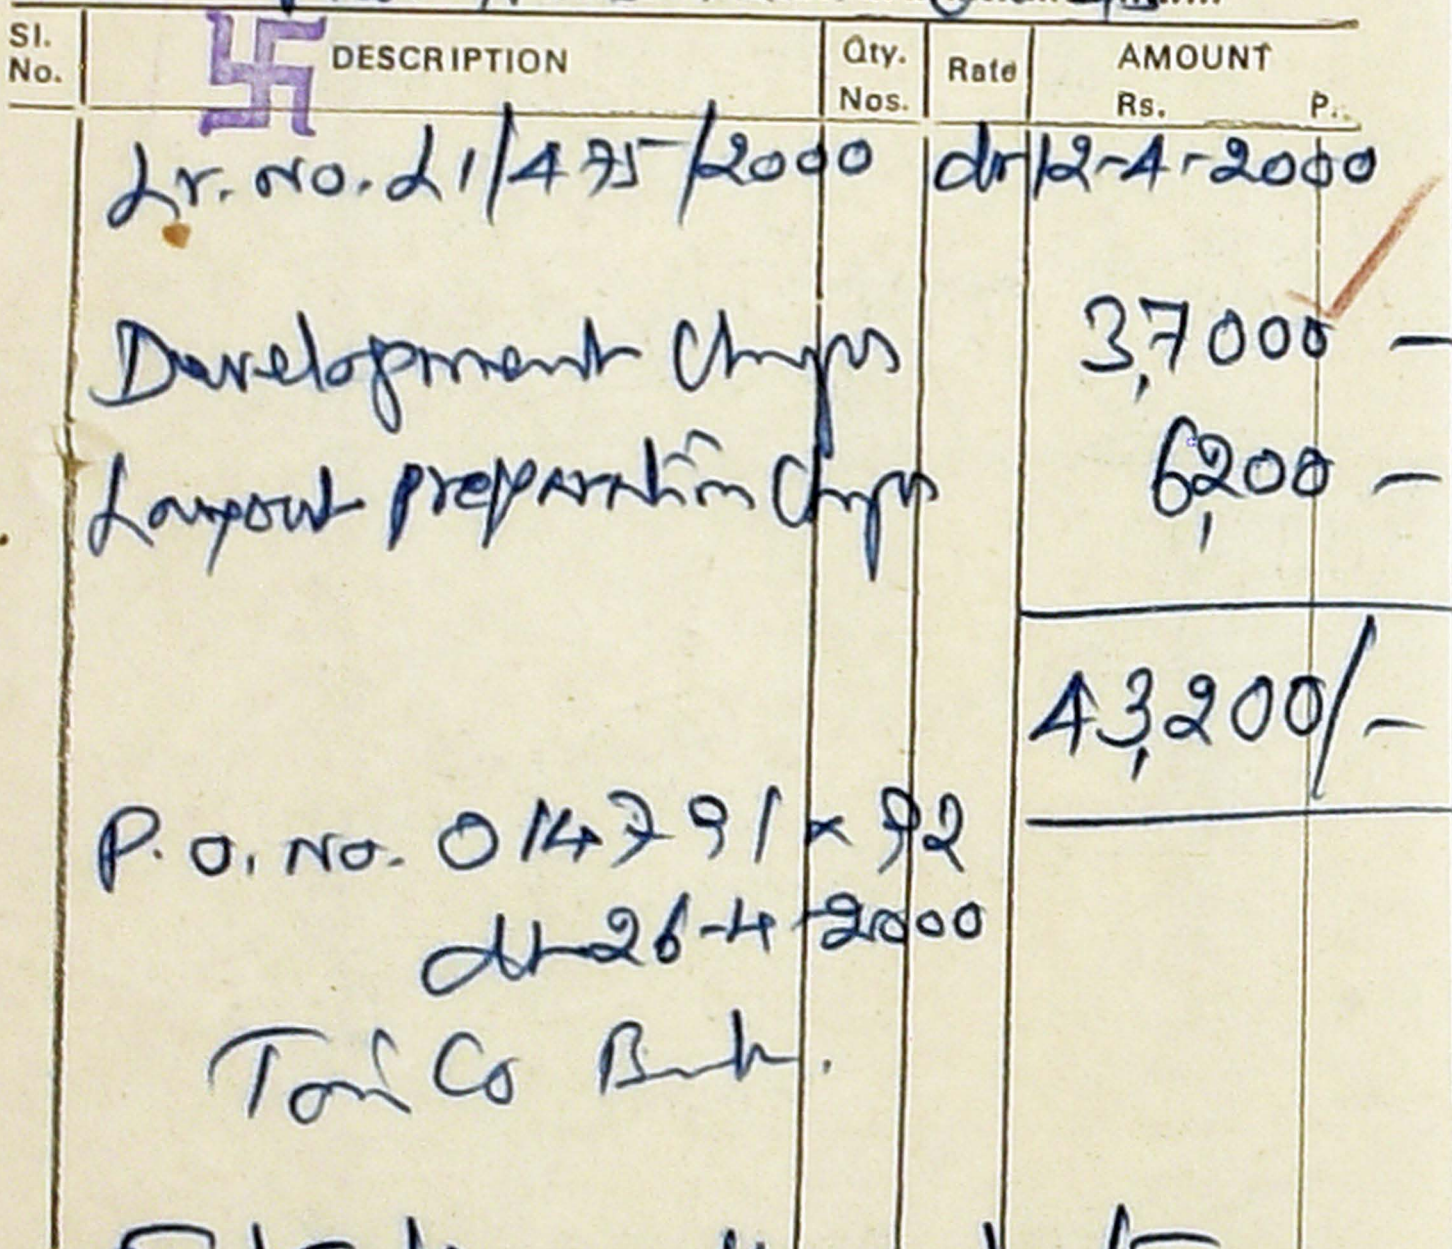 Sl. No. DESCRIPTION Qty. Nos. Rate AMOUNT Rs. P.
Lr. No. L1/475/2000 dt 12-4-2000
Development Chrgs 37,000 —
Layout preparation Chrgs 6,200 —
43,200/-
P.O. No. 014791 x 92
dt 26-4-2000
Co Bank.